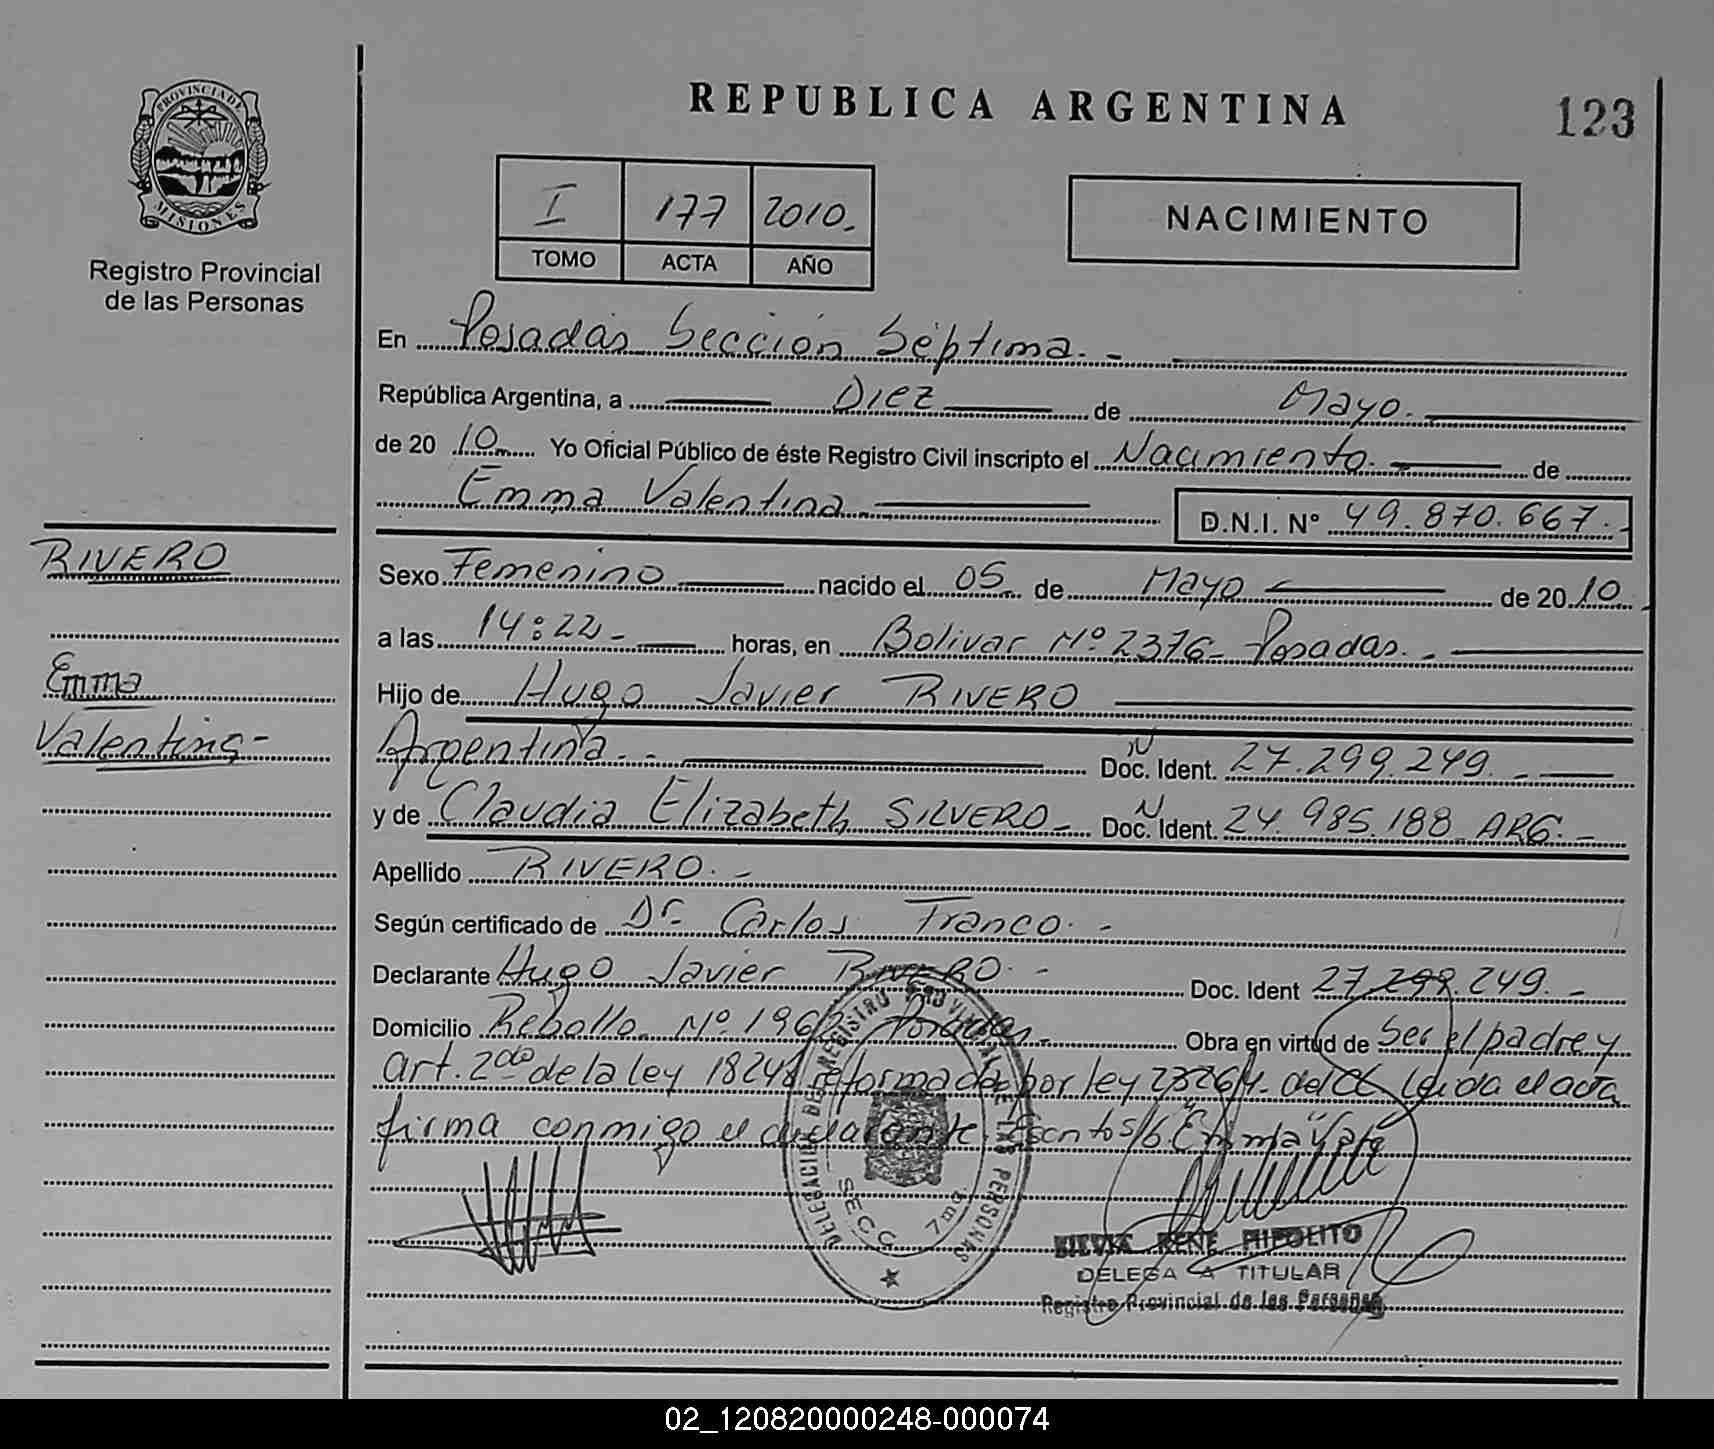 PROVINCIA DE
MISIONES
Registro Provincial
de las Personas
REPUBLICA ARGENTINA
123
I 177 2010.
TOMO ACTA AÑO
NACIMIENTO
En Posadas Sección Séptima.-
República Argentina, a Diez de Mayo.
de 2010 Yo Oficial Público de éste Registro Civil inscripto el Nacimiento. de
Emma Valentina D.N.I. N° 49.870.667.-
RIVERO
Emma
Valentina-
Sexo Femenino nacido el 05 de Mayo de 2010
a las 14:22- horas, en Bolivar Nº 2376- Posadas.-
Hijo de Hugo Javier RIVERO
Argentina.- N Doc. Ident. 27.299.249.-
y de Claudia Elizabeth SILVERO- N Doc. Ident. 24.985.188 ARG.-
Apellido RIVERO.-
Según certificado de Dr. Carlos Franco.-
Declarante Hugo Javier RIVERO.- Doc. Ident 27.299.249.-
Domicilio Nº Posadas.- Obra en virtud de Ser el padre y
art. 2do de la ley 18248 reformada por ley 23264. del CC Leida el acta
firma conmigo el declarante. "Emma"
DELEGACION DE REGISTRO PROVINCIAL DE LAS PERSONAS
SECC. 7ma.
SILVIA RENE HIPOLITO
DELEGADA TITULAR
Registro Provincial de las Personas
02_120820000248-000074